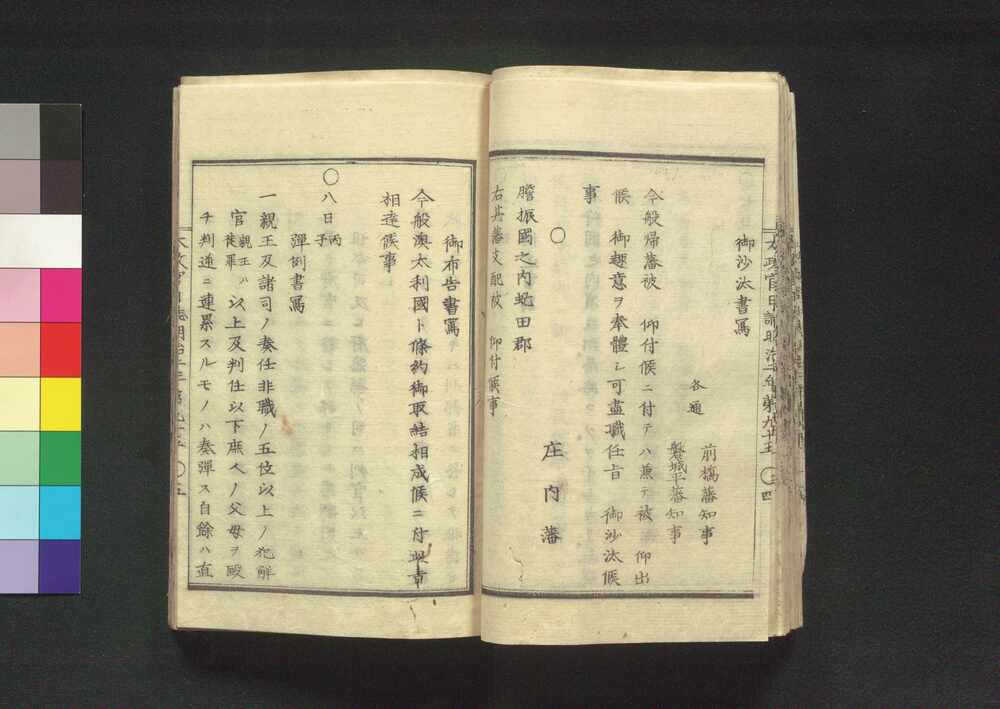 御沙汰書寫
各通
前橋藩知事
磐城平藩知事
今般帰藩被 仰付候ニ付テハ兼テ被 仰出
候 御趣意ヲ奉體シ可盡職任旨 御沙汰候
事
○
庄内藩
膽振國之内虻田郡
右其藩支配被 仰付候事
御布告書寫
今般澳太利國ト條約御取結相成候ニ付此章
相達候事
○八日丙子
彈例書寫
一親王及諸司ノ奏任非職ノ五位以上ノ犯解
官親王ハ徒罪以上及判任以下庶人ノ父母ヲ毆
チ判逓ニ連累スルモノハ奏彈ス自餘ハ直